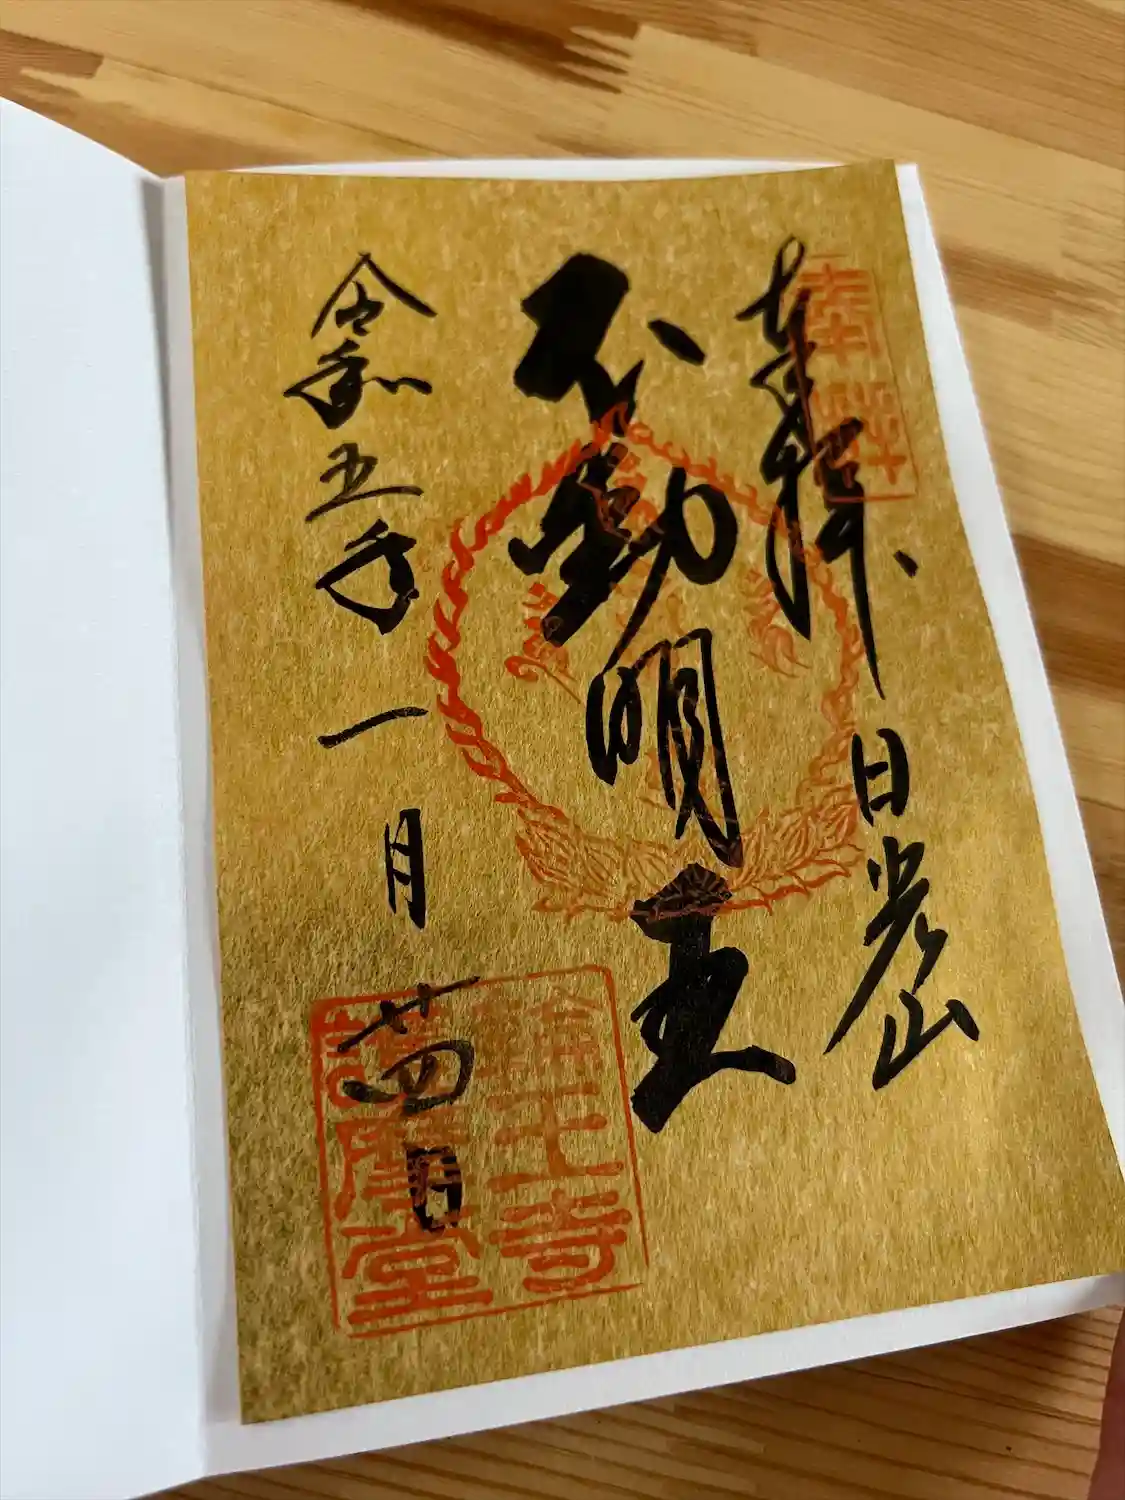 奉拝 日光山
不動明王
令和五年一月廿四日
輪王寺
護摩堂